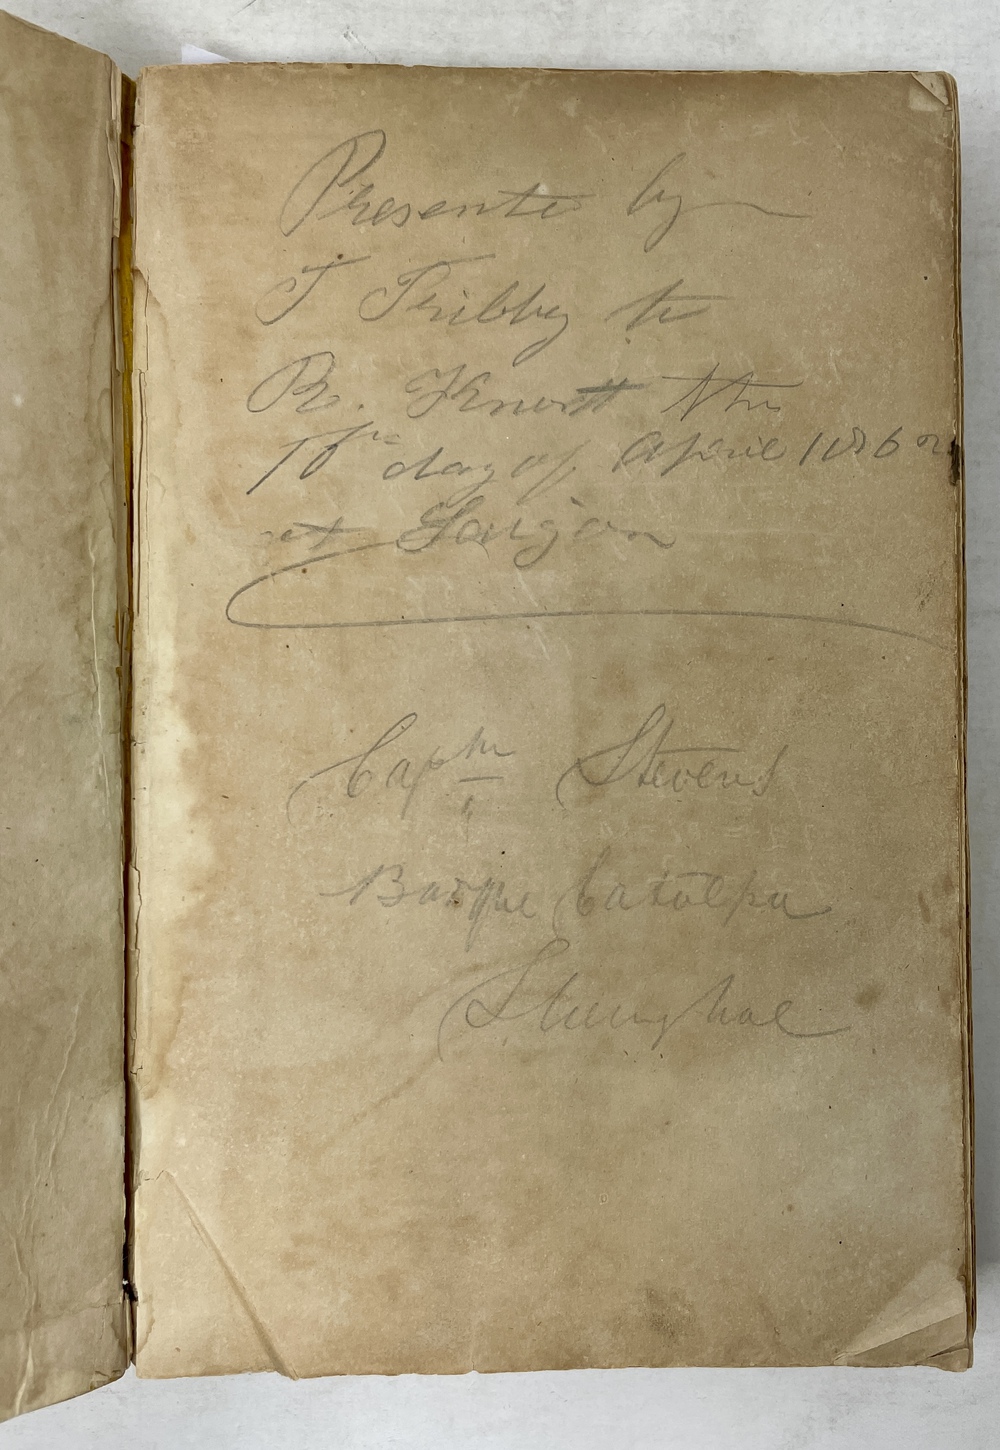 Presented by
T Tribby to
R. Knott this
day of April 186
at Saigon
Captn Stevens
Barque Catalpa
Shanghae